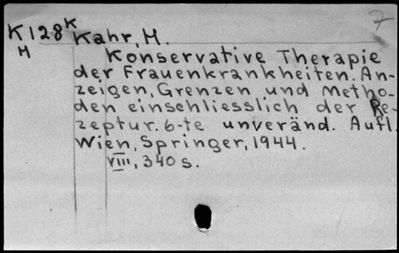 7
K128K Kahr, M.
M
Konservative Therapie
der Frauenkrankheiten. An-
zeigen, Grenzen und Metho-
den einschliesslich der Re-
zeptur. 6-te unveränd. Aufl.
Wien, Springer, 1944.
VIII, 340 s.